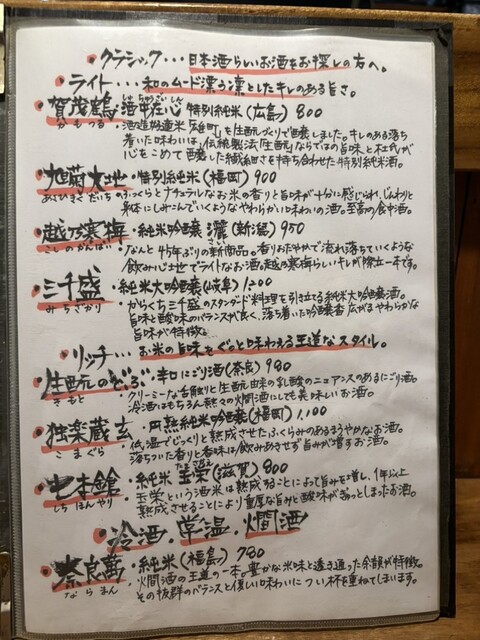 クラシック・・・日本酒らしいお酒をお探しの方へ。
・ライト・・・和のムード漂う凛としたキレのある旨さ。
・賀茂鶴 酒中在心 特別純米(広島) 800
かもつる しゅちゅうざいしん
・酒造好適米「雄町」を生酛づくりで醸しました。キレのある落ち
着いた味わいは、伝統製法「生酛」ならではの旨味と杜氏が
心をこめて醸した繊細さを持ち合わせた特別純米酒。
・旭菊 大地・特別純米(福岡) 900
あさひきく だいち
・ふっくらとナチュラルなお米の香りと旨味が十分に感じられ、じんわりと
身体にしみこんでいくようなやわらかい口味わいの酒。至高の食中酒。
・越乃寒梅・純米吟醸 灑(新潟) 950
こしのかんばい
・なんと45年ぶりの新商品。香りおだやかで流れ落ちていくような
飲み心地でライトなお酒。越乃寒梅らしいキレが際立つ一本です。
・三千盛・純米大吟醸(岐阜) 1200
みちさかり
・からくち三千盛のスタンダード料理を引き立てる純米大吟醸酒。
旨味と酸味のバランスが良く、落ち着いた吟醸香広がるやわらかな
旨味が特徴。
リッチ・・・お米の旨味をぐっと味わえる王道なスタイル。
・生酛のどぶ・辛口にごり酒(奈良) 980
きもと
・クリーミーな舌触りと生酛由来の乳酸のニュアンスのあるにごり酒。
冷酒はもちろん熱々の燗酒にしても美味しいお酒。
・独楽蔵 玄・円熟純米吟醸(福岡) 1,100
こまぐら
・低温でじっくりと熟成させたふくらみのあるまろやかなお酒。
落ちついた香りと香味は飲みあきせず旨みが増すお酒。
・七本鎗・純米 玉栄(滋賀) 800
しちほんやり たまさかえ
・玉栄という酒米は熟成することによって旨みを増し、1年以上
熟成させることにより重厚な旨みと酸味がぎっとしまったお酒。
冷酒・常温・燗酒
・奈良萬・純米(福島) 780
ならまん
・燗酒の王道の一本。豊かな米味と透き通った余韻が特徴。
その抜群のバランスと優しい味わいについ杯を重ねてしまいます。